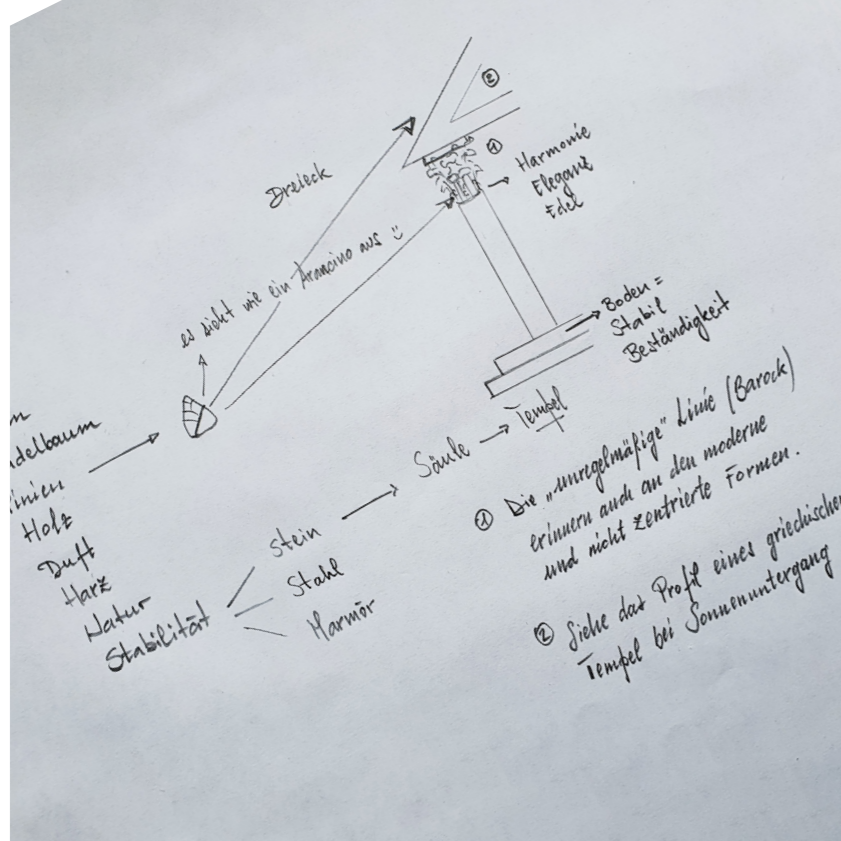 ②
①
Dreieck
Harmonie
Eleganz
Edel
es sieht wie ein Arancino aus
Boden =
Stabil
Beständigkeit
delbaum
inien
Holz
Duft
Harz
Natur
Stabilität
Stein
Stahl
Marmor
Säule
Tempel
① Die „unregelmäßige" Linie (Barock)
erinnern auch an den moderne
und nicht zentrierte Formen.
② Siehe das Profil eines griechischen
Tempel bei Sonnenuntergang